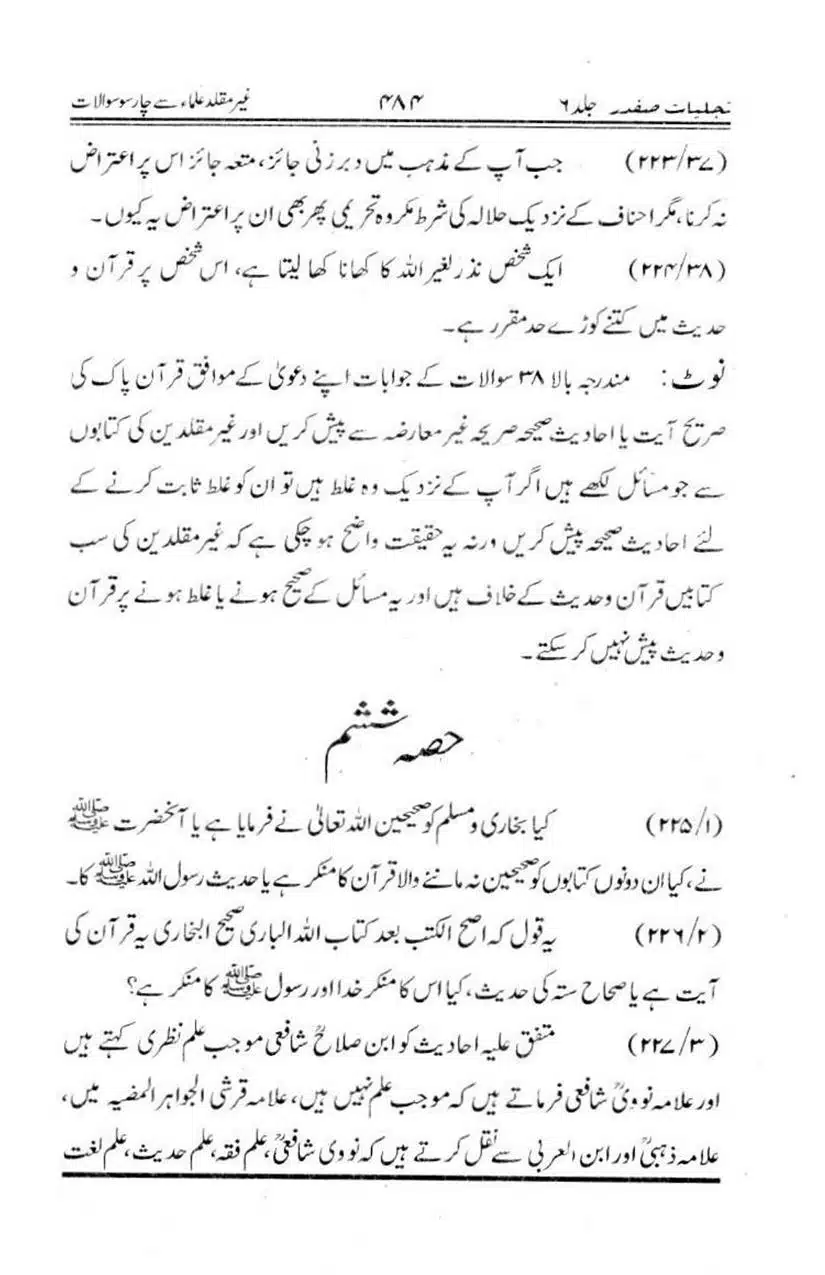 تجلیات صفدر جلد ۶ ۴۸۴ غیر مقلد علماء سے چار سو سوالات
(۲۲۳/۳۷) جب آپ کے مذہب میں دبر زنی جائز، متعہ جائز اس پر اعتراض
نہ کرنا، مگر احناف کے نزدیک حلالہ کی شرط مکروہ تحریمی پھر بھی ان پر اعتراض یہ کیوں۔
(۲۲۴/۳۸) ایک شخص نذر لغیر اللہ کا کھانا کھا لیتا ہے، اس شخص پر قرآن و
حدیث میں کتنے کوڑے حد مقرر ہے۔
نوٹ: مندرجہ بالا ۳۸ سوالات کے جوابات اپنے دعویٰ کے موافق قرآن پاک کی
صریح آیت یا احادیث صحیحہ صریحہ غیر معارضہ سے پیش کریں اور غیر مقلدین کی کتابوں
سے جو مسائل لکھے ہیں اگر آپ کے نزدیک وہ غلط ہیں تو ان کو غلط ثابت کرنے کے
لئے احادیث صحیحہ پیش کریں ورنہ یہ حقیقت واضح ہو چکی ہے کہ غیر مقلدین کی سب
کتابیں قرآن و حدیث کے خلاف ہیں اور یہ مسائل کے صحیح ہونے یا غلط ہونے پر قرآن
و حدیث پیش نہیں کر سکتے۔
حصہ ششم
(۲۲۵/۱) کیا بخاری و مسلم کو صحیحین اللہ تعالیٰ نے فرمایا ہے یا آنحضرت ﷺ
نے، کیا ان دونوں کتابوں کو صحیحین نہ ماننے والا قرآن کا منکر ہے یا حدیث رسول اللہ ﷺ کا۔
(۲۲۶/۲) یہ قول کہ اصح الکتب بعد کتاب اللہ الباری صحیح البخاری یہ قرآن کی
آیت ہے یا صحاح ستہ کی حدیث، کیا اس کا منکر خدا اور رسول ﷺ کا منکر ہے؟
(۲۲۷/۳) متفق علیہ احادیث کو ابن صلاحؒ شافعی موجب علم نظری کہتے ہیں
اور علامہ نوویؒ شافعی فرماتے ہیں کہ موجب علم نہیں ہیں، علامہ قرشی الجواہر المضیہ میں،
علامہ ذہبیؒ اور ابن العربی سے نقل کرتے ہیں کہ نووی شافعیؒ، علم فقہ، علم حدیث، علم لغت